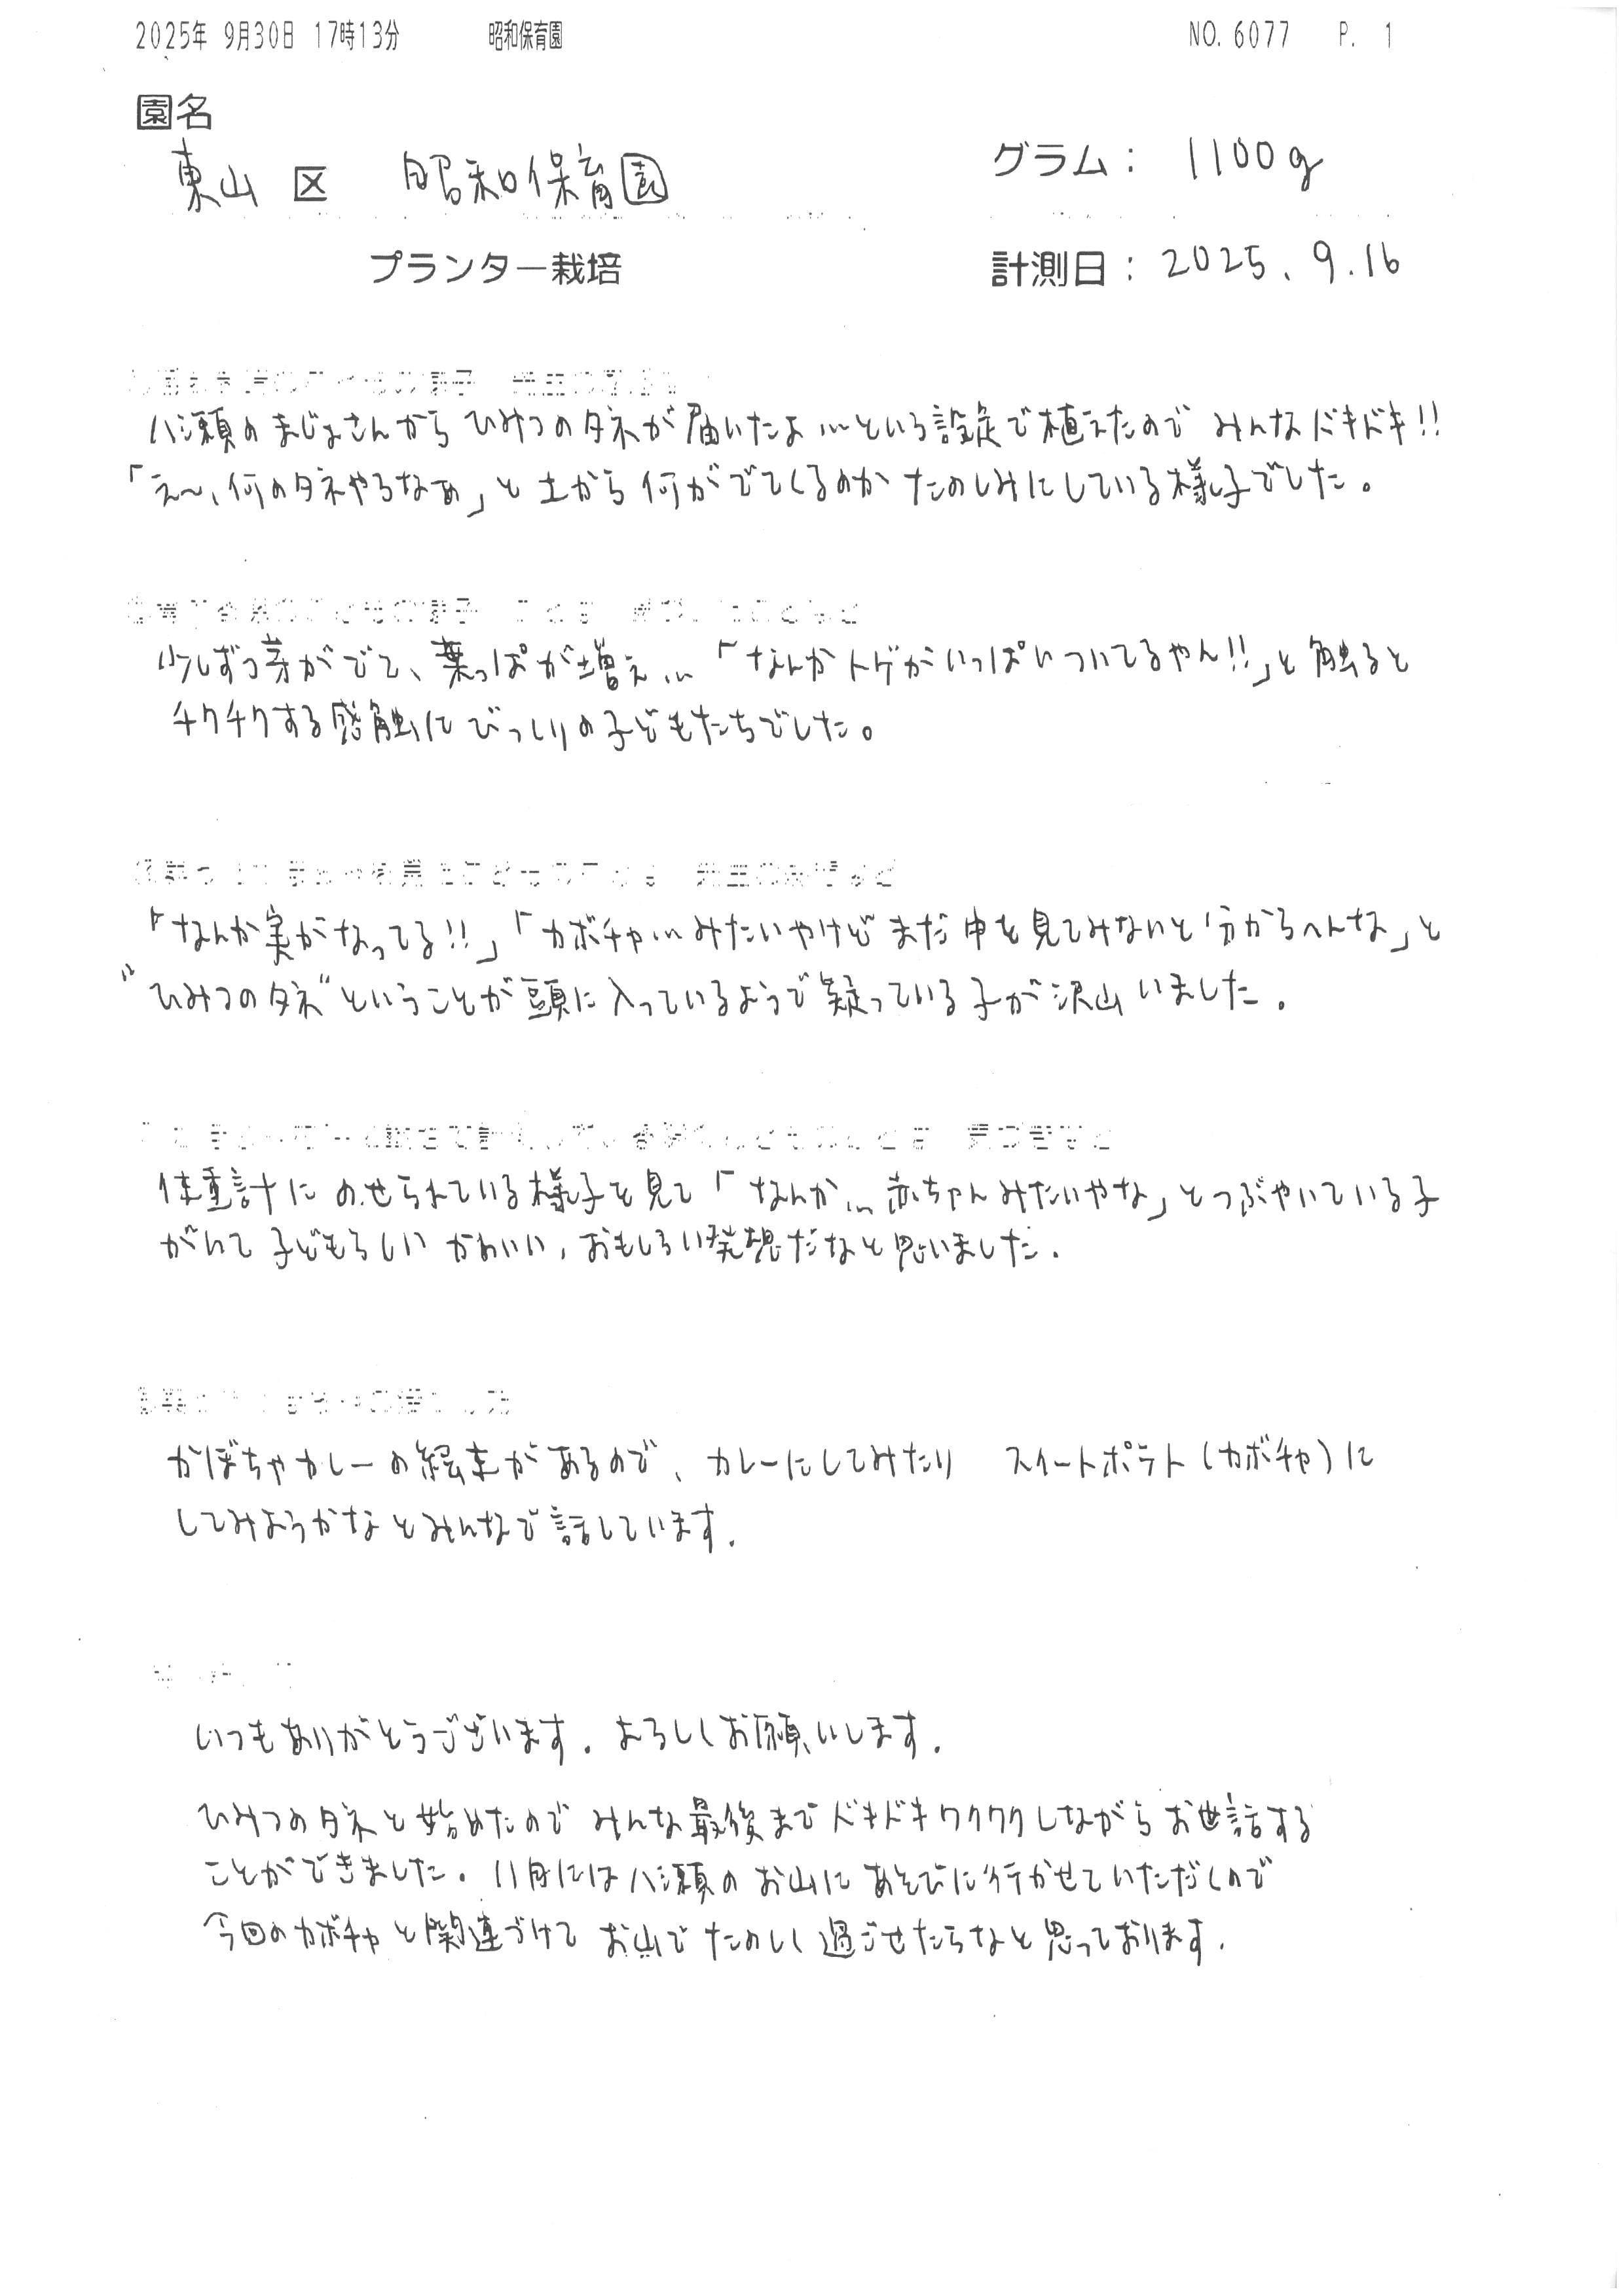 2025年 9月30日 17時13分 昭和保育園 NO. 6077 P. 1
園名
東山 区 昭和保育園
グラム： 1100g
プランター栽培
計測日： 2025. 9. 16
八瀬のまじょさんから ひみつのタネが届いたよ…という設定で植えたので みんなドキドキ!!
「え〜、何のタネやろなぁ」と 土から 何がでてくるのか たのしみにしている様子でした。
少しずつ芽がでて、葉っぱが増え… 「なんかトゲがいっぱいついてるやん!!」と 触ると
チクチクする感触にびっくりの子どもたちでした。
「なんか実がなってる!!」「カボチャ…みたいやけど まだ中を見てみないと分からへんな」と
"ひみつのタネ"ということが頭に入っているようで疑っている子が沢山いました。
体重計に のせられている様子を見て「なんか… 赤ちゃんみたいやな」とつぶやいている子
がいて 子どもらしい かわいい, おもしろい発想だなと思いました.
かぼちゃカレーの絵本があるので、カレーにしてみたり スイートポテト(カボチャ)に
してみようかなとみんなで話しています.
いつもありがとうございます. よろしくお願いします.
ひみつのタネと始めたので みんな最後まで ドキドキワクワクしながらお世話する
ことができました。11月には八瀬のお山に あそびに行かせていただくので
今回のカボチャと関連づけて お山で たのしく過ごせたらなと思っております.